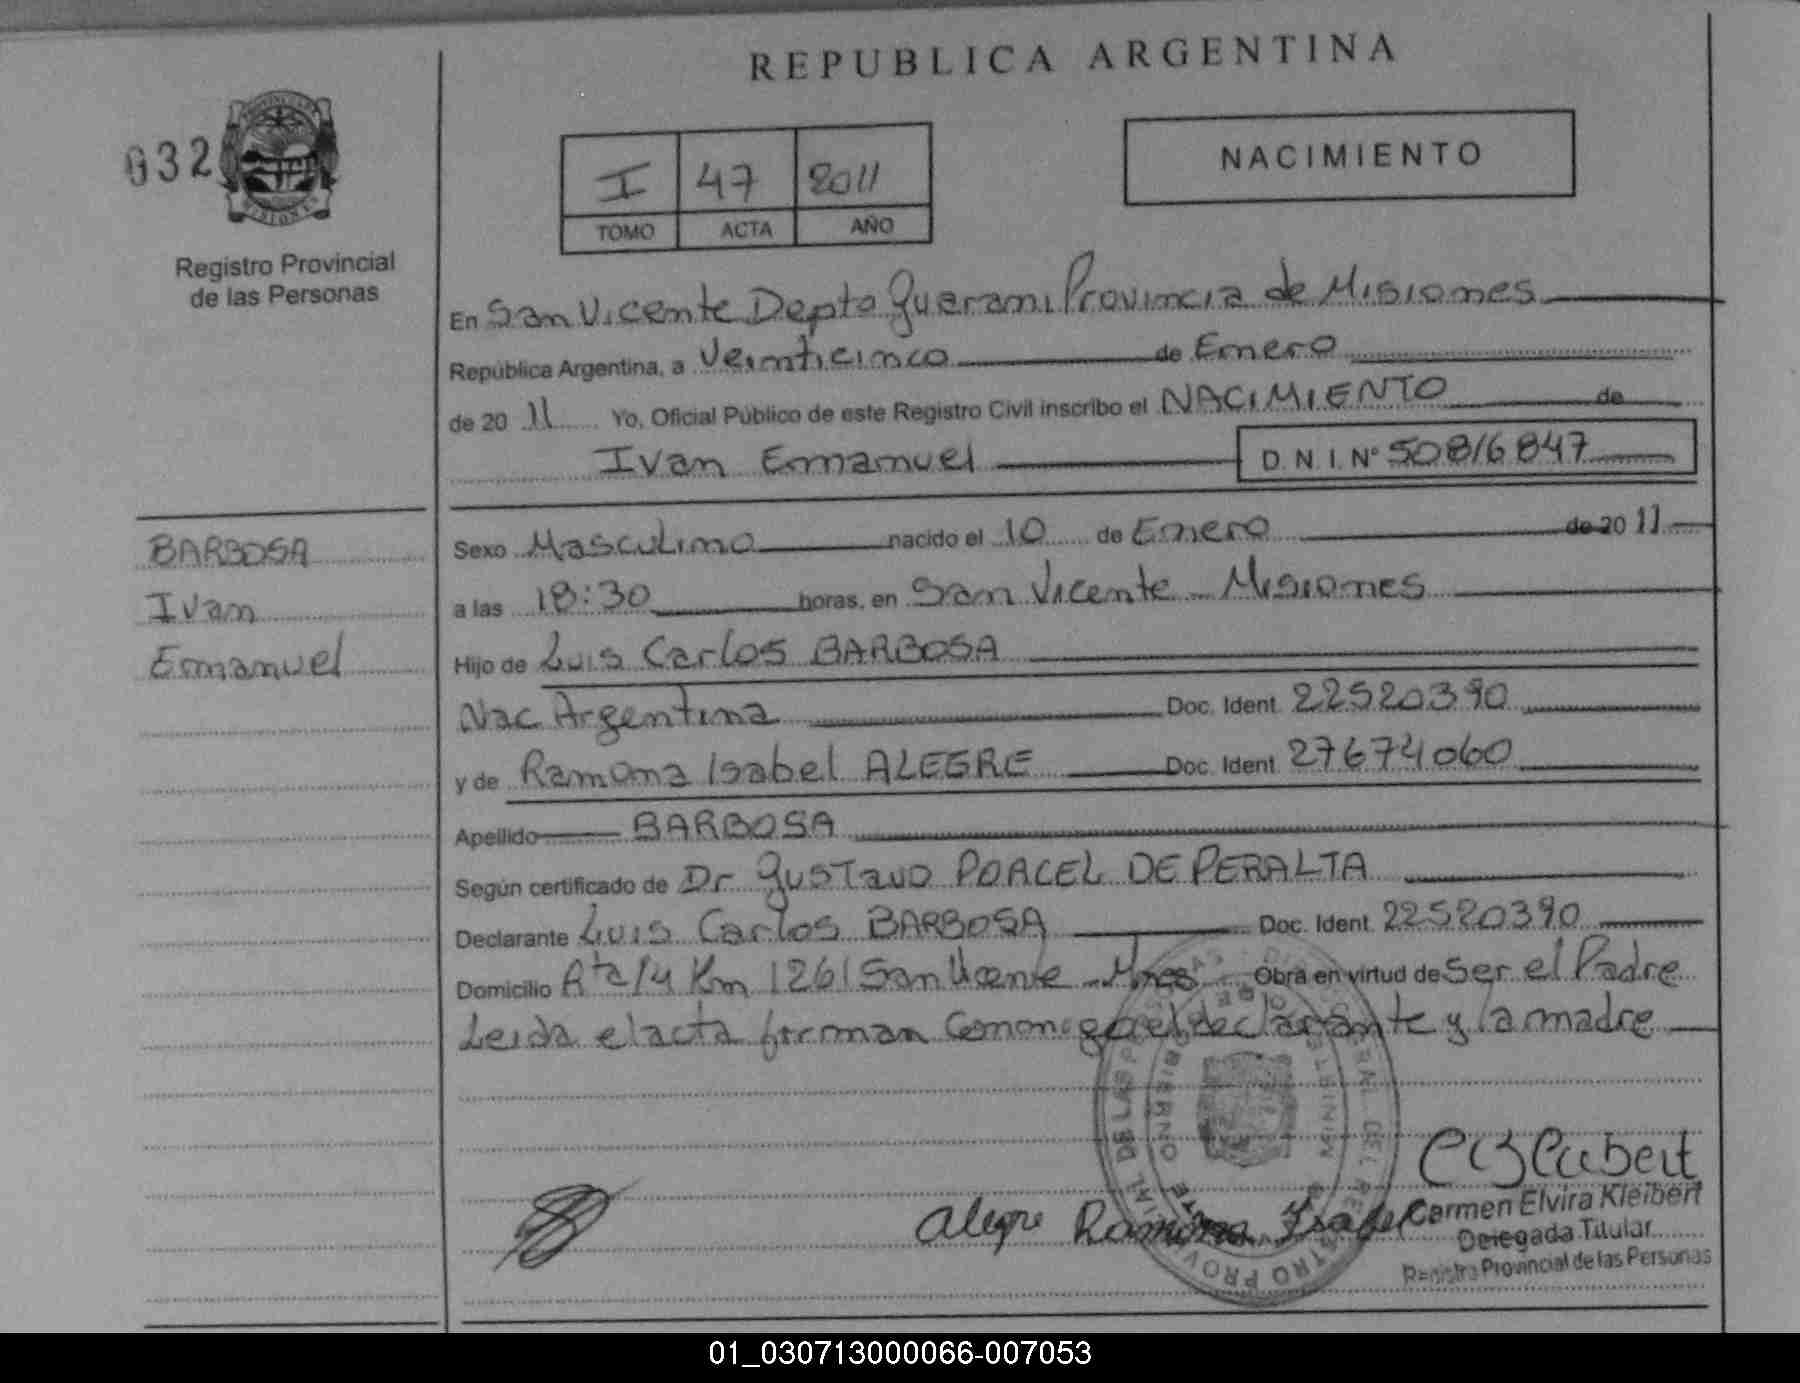 REPUBLICA ARGENTINA
032
PROVINCIA DE
MISIONES
Registro Provincial
de las Personas
I 47 2011
TOMO ACTA AÑO
NACIMIENTO
En San Vicente Depto Guarani Provincia de Misiones
República Argentina, a Veinticinco de Enero
de 20 11 Yo, Oficial Público de este Registro Civil inscribo el NACIMIENTO de
Ivan Emanuel D.N.I. N° 50816847
BARBOSA
Ivan
Emanuel
Sexo Masculino nacido el 10 de Enero de 20 11
a las 18:30 horas, en San Vicente Misiones
Hijo de Luis Carlos BARBOSA
Nac Argentina Doc. Ident. 22520390
y de Ramona Isabel ALEGRE Doc. Ident. 27674060
Apellido BARBOSA
Según certificado de Dr Gustavo PORCEL DE PERALTA
Declarante Luis Carlos BARBOSA Doc. Ident. 22520390
Domicilio Rta 14 Km 1261 San Vicente Mnes Obra en virtud de Ser el Padre
Leida el acta firman Conmigo el declarante y la madre
Alegre Ramona Isabel
Carmen Elvira Kleibert
Delegada Titular
Registro Provincial de las Personas
01_030713000066-007053